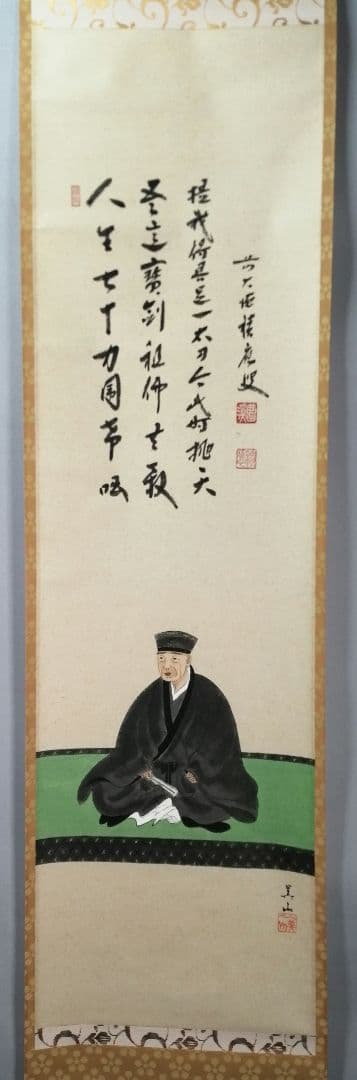 人生七十力囲希咄
吾這寶剣祖佛共殺
提我得具足一太刀今此時抛天
大徳積應叟